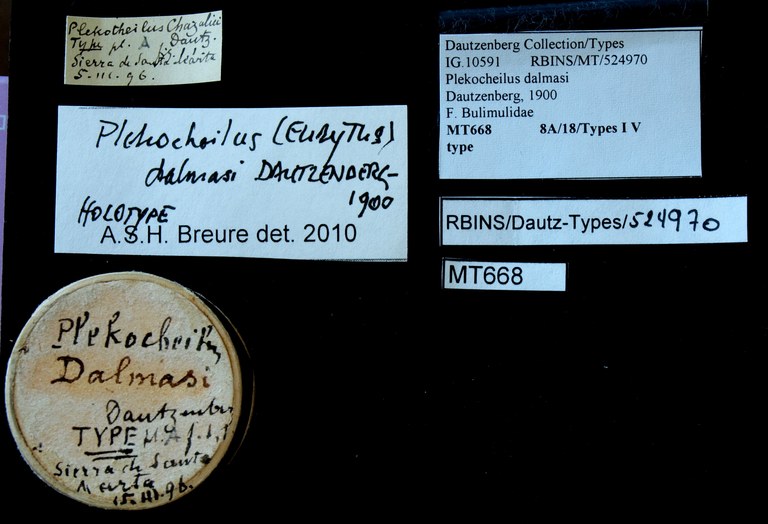 Plekotheilus Chazaliei
Type pl. A f. Dautz.
Sierra de Santa Marta
5. III. 96.
Plekocheilus (Eurytus)
dalmasi DAUTZENBERG
1900
HOLOTYPE
A.S.H. Breure det. 2010
Plekocheilus
Dalmasi
Dautzenber
TYPE pl. A f. 1, 1
Sierra de Santa
Marta
15. III. 96.
Dautzenberg Collection/Types
IG.10591 RBINS/MT/524970
Plekocheilus dalmasi
Dautzenberg, 1900
F. Bulimulidae
MT668 8A/18/Types I V
type
RBINS/Dautz-Types/524970
MT668